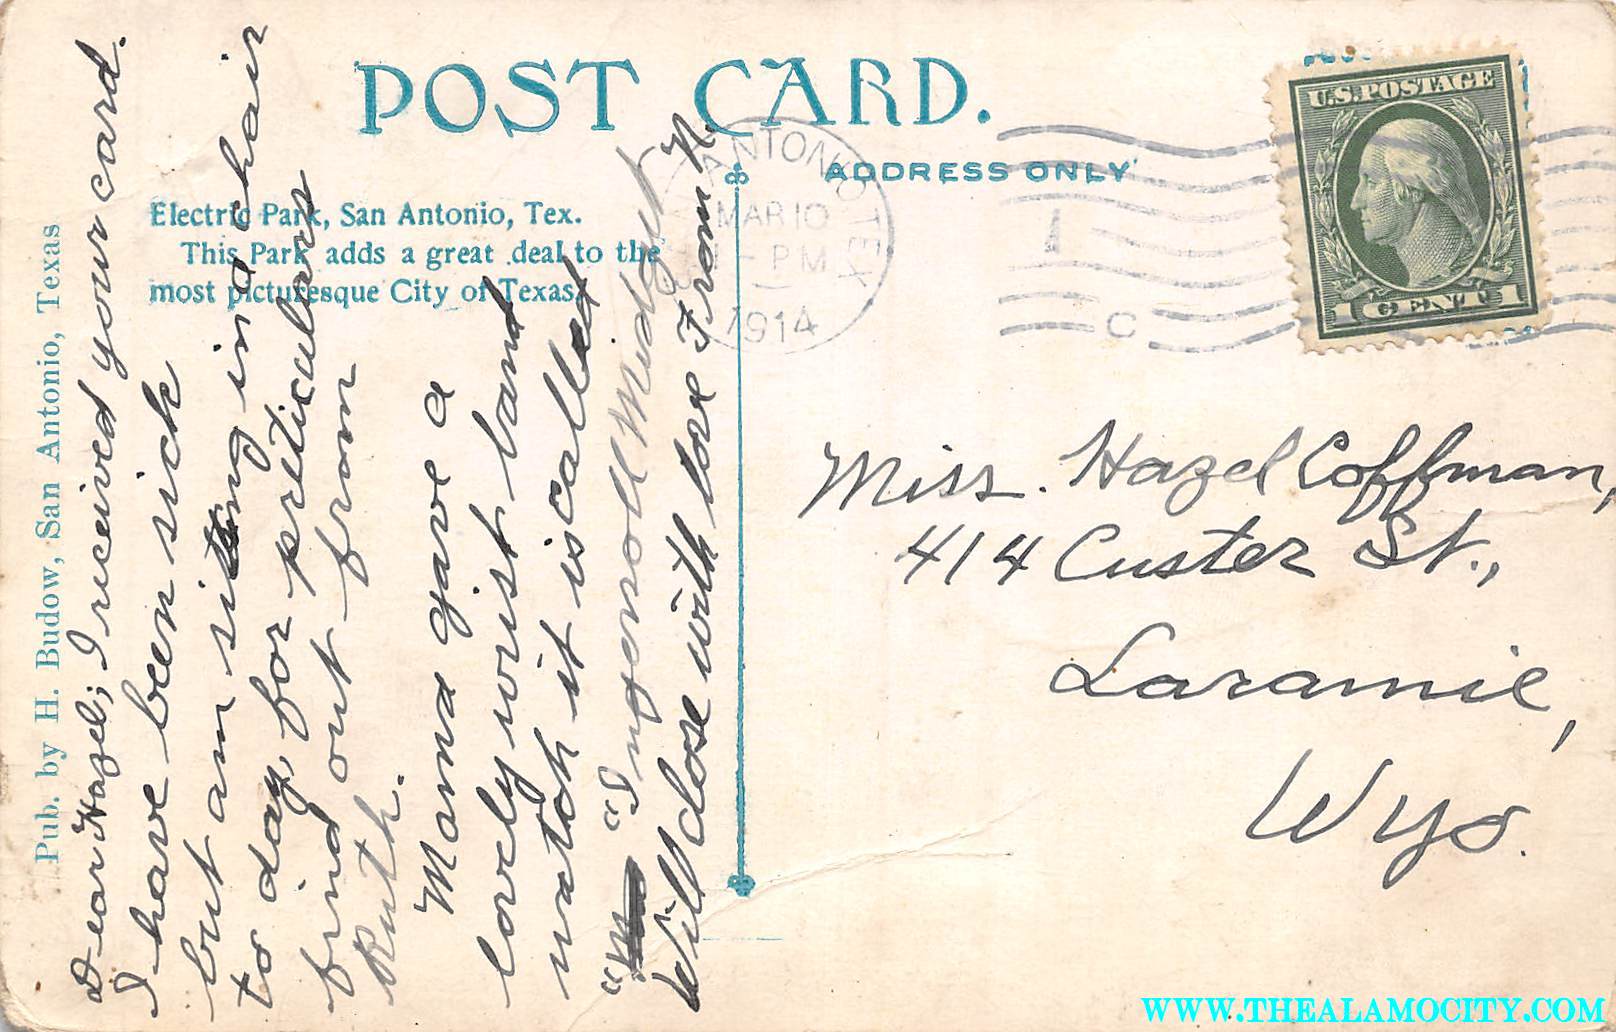 POST CARD.
ADDRESS ONLY
Electric Park, San Antonio, Tex.
This Park adds a great deal to the
most picturesque City of Texas.
Pub. by H. Budow, San Antonio, Texas
Dear Hazel; I received your card.
I have been sick
but am sitting in a chair
to day, for priticulars
find out from
Ruth.
Mama gave a
lovely wrist band
watch it is called
"Ingersoll Midget"
Will close with love From N.
ANTONIO TEX
MAR 10
PM
1914
C
U.S. POSTAGE
1 CENT 1
Miss. Hazel Coffman,
414 Custer St.,
Laramie,
Wyo.
WWW.THEALAMOCITY.COM